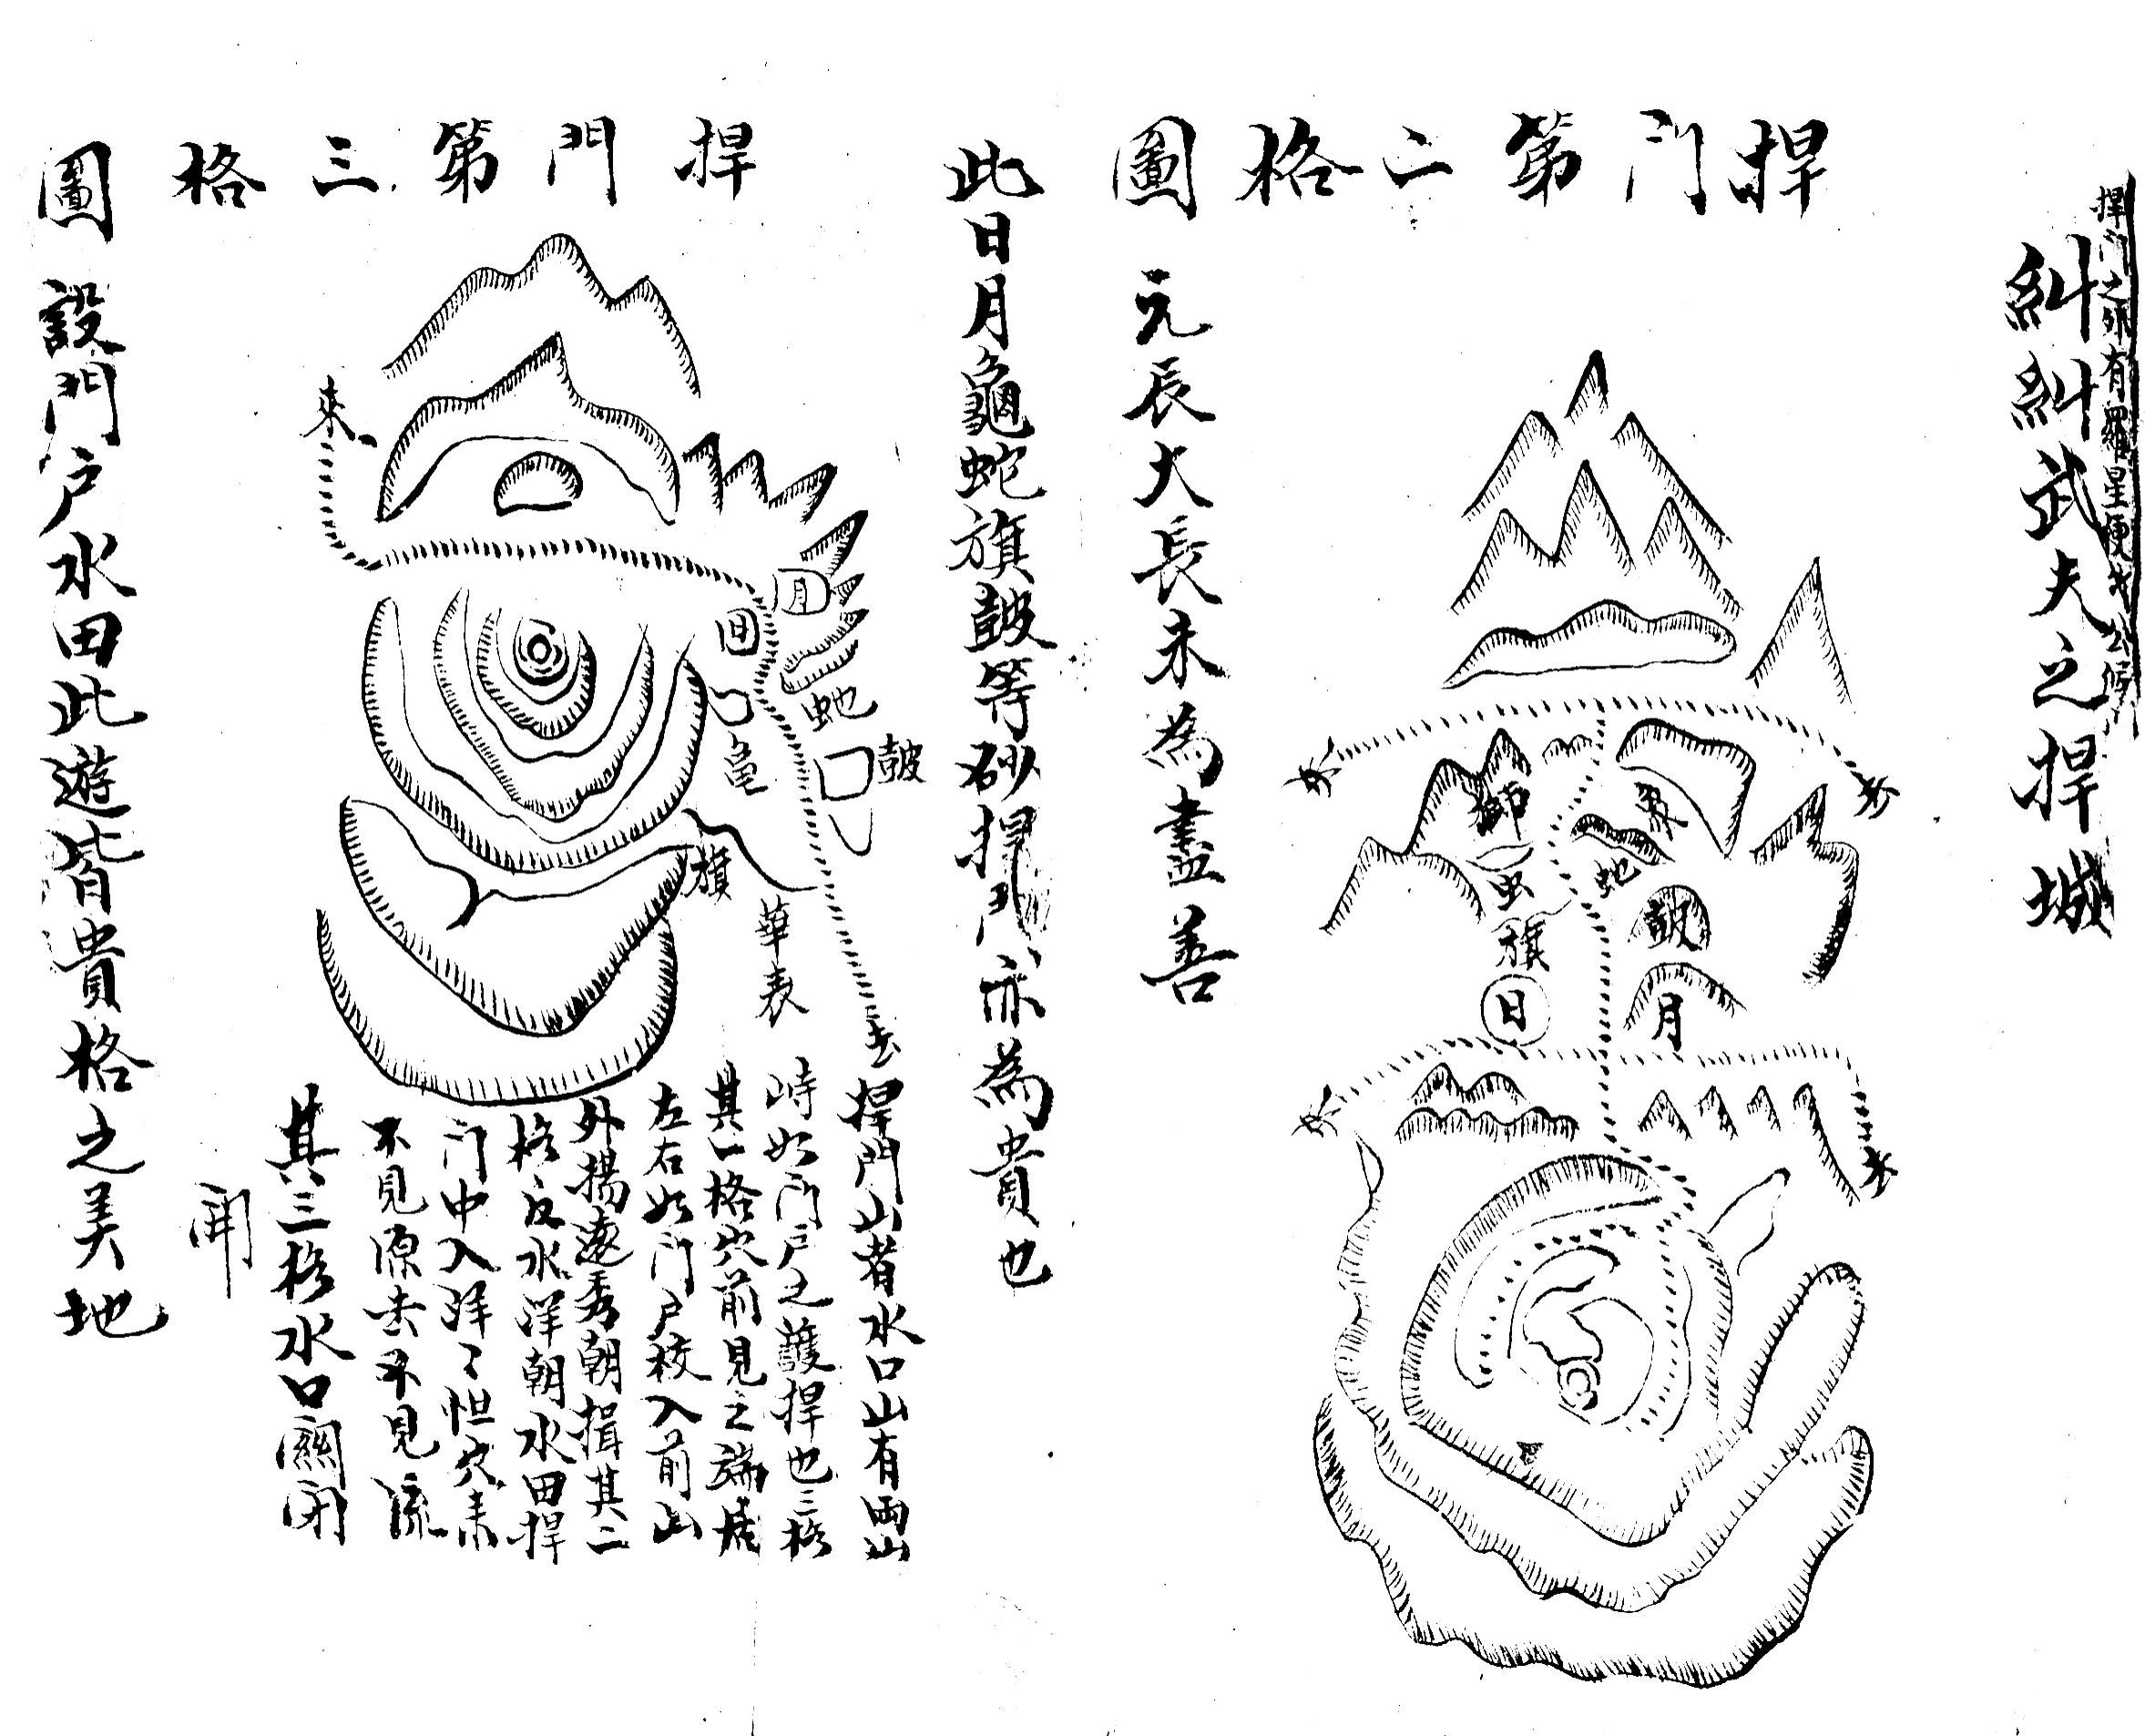 捍门之外有羅星便为公侯
糾糾武夫之捍城
捍门第二格圖
元辰大長未為盡善
獅
象
虫
蛇
旗
鼓
日
月
去
此日月龜蛇旗鼓等砂捍门亦為貴也
捍門第三格圖
來
月
日
蛇
龟
鼓
旗
華表
去
捍門山者水口山有両山
時如门户之護捍也三格
其一格穴前見之端居
左右如门户校入前山
外揚遠秀朝揖其二
格反水洋朝水田捍
门中入洋々怛穴来
不見源去不見流
其三格水口關闭
開
設門户水田此遊皆貴格之美地